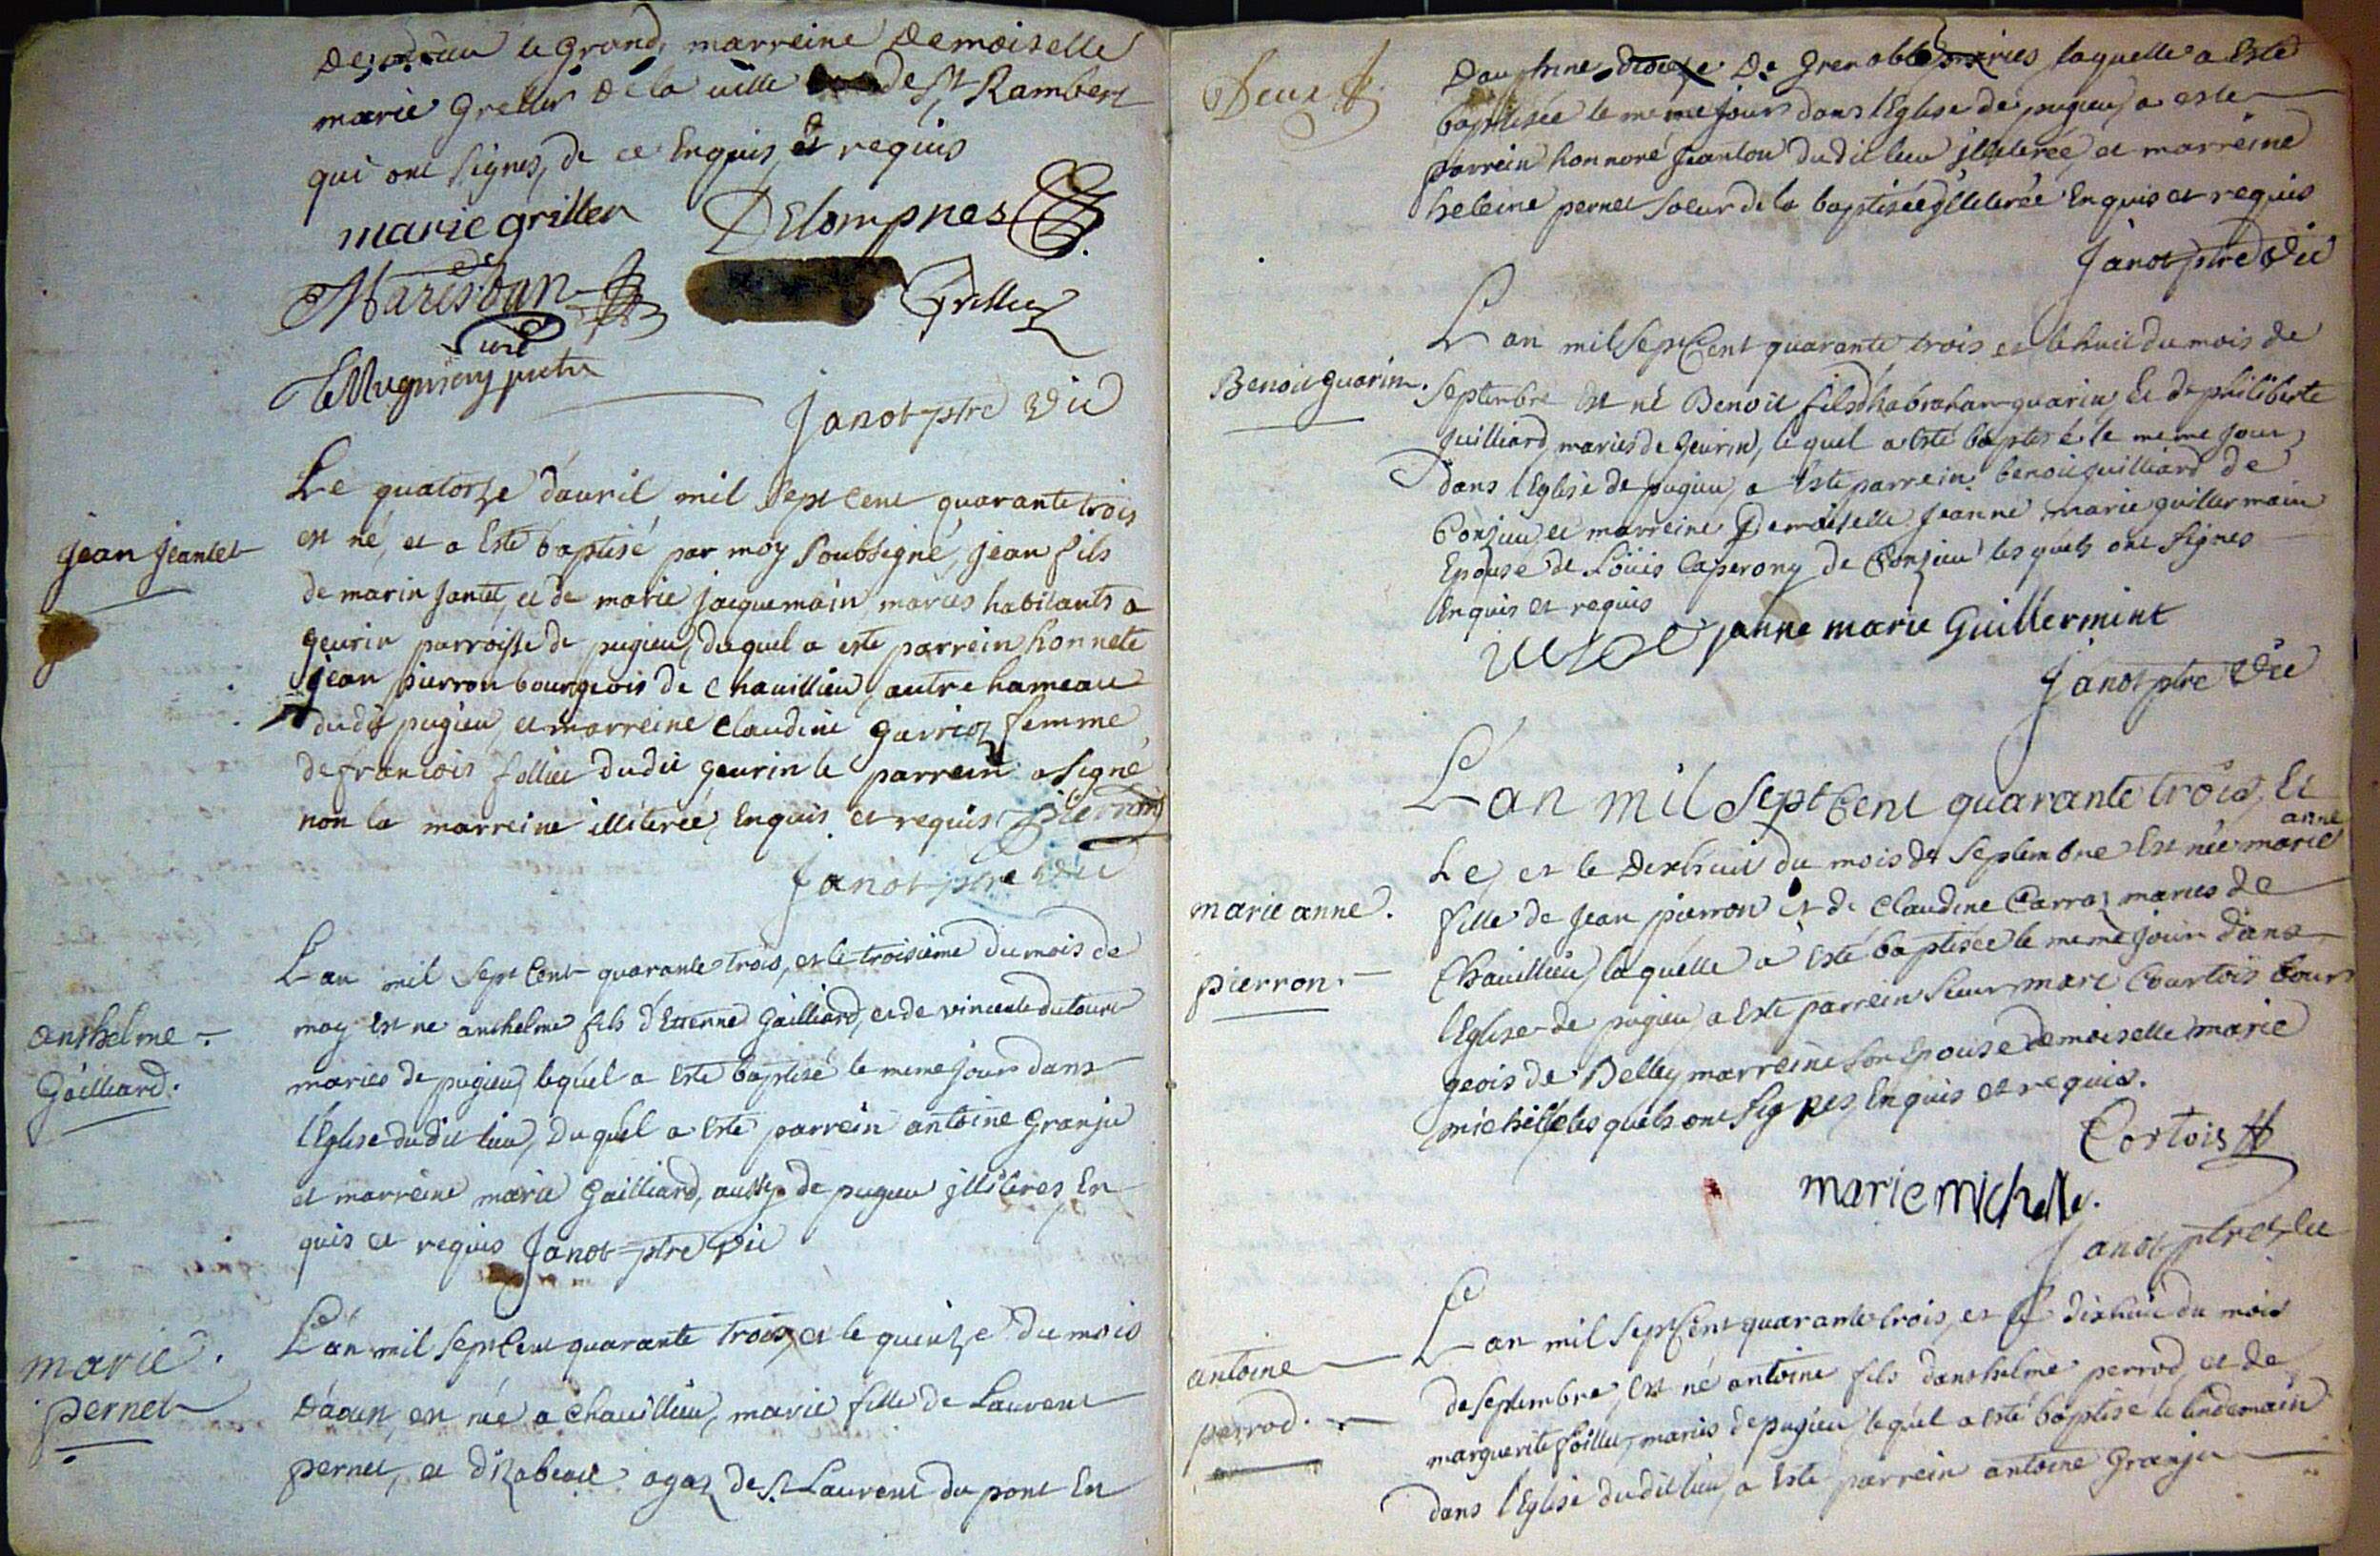 le grand, marreine Demoiselle
marie Grillet De la ville de St Rambert
qui ont signes, de ce Enquis, et requis
marie grillet Delompnes
Marisban Grillet
curé
pretre
Janot ptre vic
Le quatorze d'auril mil sept cent quarante trois
jean jeantet
est né, et a Esté baptisé par moy soubsigné, jean fils
de marin jantet, et de marie jacquemain mariés habitants a
geurin parroisse de pugieu, duquel a esté parrein honnete
jean pierron bourgeois de Chauillieu, autre hameau
dudit pugieu, et marreine Claudine garrioz femme
de francois folliet dudit geurin le parrein a signé
non la marreine illiterée, Enquis et requis Pierron
Janot ptre vic
L'an mil sept Cent quarante trois, et le troisième du mois de
anthelme
Gailliard.
may Est né anthelme fils d'Etienne Gailliard, et de vincente dutour
maries de pugieu, lequel a Esté baptisé le meme jour dans
l'Eglise dudit lieu, Duquel a Esté parrein antoine Granju
et marreine marie Gailliard, aussy de pugieu jlliteres En
quis et requis Janot ptre vic
L'an mil sept Cent quarante trois, et le quinze du mois
marie
pernet
D'aoun, est née a Chauillieu, marie fille de Laurent
pernet, et d'izabeau agaz de St Laurent du pont En
Deux
Dauphine, dioceze De Grenoble maries laquelle a Esté
baptisée le meme jour dans l'Eglise de pugieu, a esté
parrein honnoré jeanton dudit lieu jlliterée et marreine
heleine pernet soeur de la baptisée jlliterée Enquis et requis
Janot ptre vic
L'an mil sept Cent quarante trois et le huit du mois de
Benoit guarin.
Septembre Est né Benoit fils d'habraham guarin, Et de philiberte
juilliard, maries de geurin, lequel a Esté baptisé le meme jour
dans l'Eglise de pugieu, a Esté parrein benoit juilliard de
Conzieu, et marreine Demoiselle jeanne marie guillermain
Epouse de Loüis Caperony de Conzieu lesquels ont signes
Enquis et requis
janne marie Guillermint
Janot ptre vic
L'an mil sept Cent quarante trois, Et
anne
Le, et le Dixhuit du mois de septembre Est née marie
marie anne.
fille de jean pierron et de Claudine Carraz maries de
pierron.
Chauillieu, laquelle a Esté baptisée le meme jour dans
l'Eglise de pugieu a Esté parrein sieur marc Courtois bour
geois de Belley marreine son Epouse demoiselle marie
michelle lesquels ont signes, Enquis et requis.
Cortois
marie michelle.
Janot ptre vic
L'an mil sept Cent quarante trois, et le dixhuit du mois
antoine
perrod.
de septembre, Est né antoine fils d'anthelme perrod, et de
marguerite foilliet, maries de pugieu, lequel a Esté baptisé le lendemain
dans l'Eglise dudit lieu, a Esté parrein antoine Granju